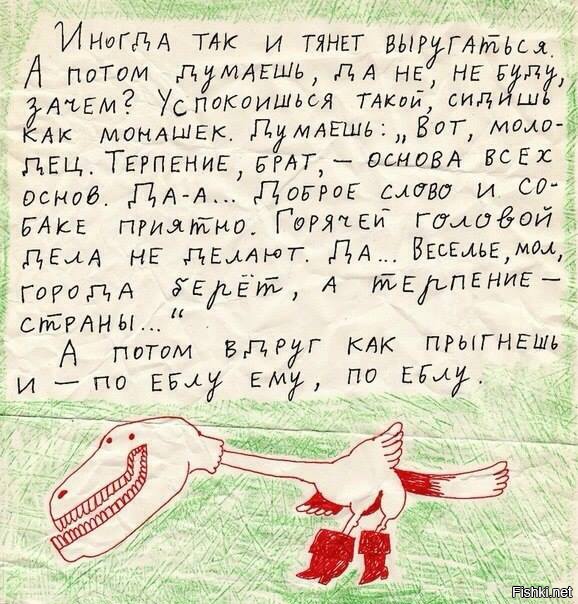 Иногда так и тянет выругаться.
А потом думаешь, да не, не буду,
зачем? Успокоишься такой, сидишь
как монашек. Думаешь: „Вот, моло-
дец. Терпение, брат, – основа всех
основ. Да-а... Доброе слово и со-
баке приятно. Горячей головой
дела не делают. Да... Веселье, мол,
города берёт, а терпение –
страны..."
А потом вдруг как прыгнешь
и – по еблу ему, по еблу.
Fishki.net